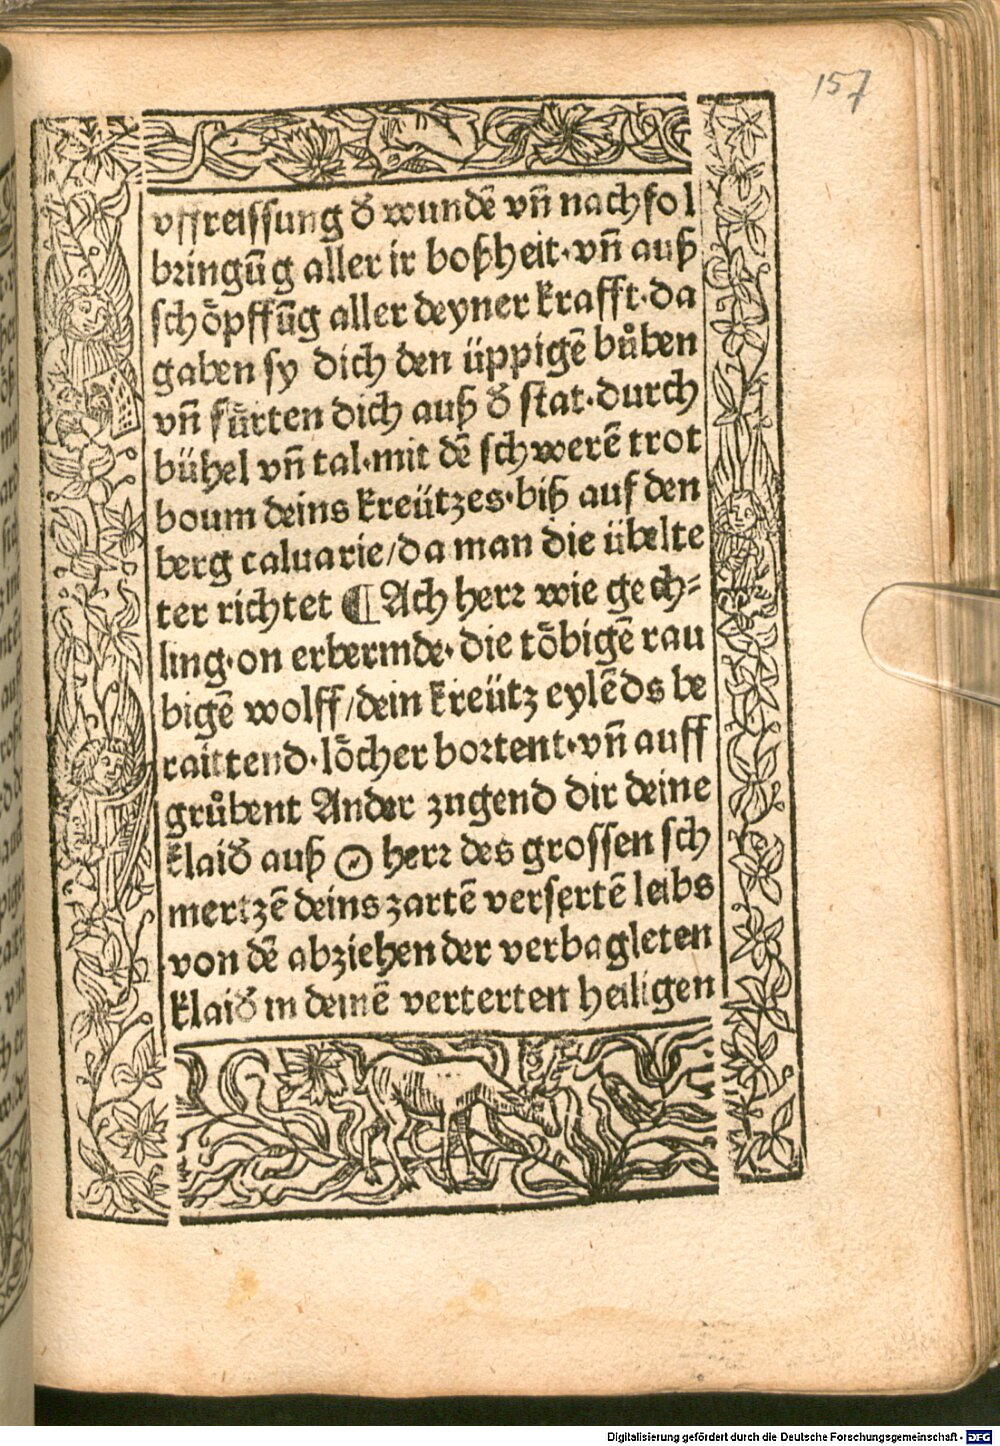 157
vffreissung d̄ wundē vn̄ nachfol
bringūg aller ir boßheit·vn̄ auß
schöpffūg aller deyner krafft·da
gaben sy dich den üppigē bůben
vn̄ fürten dich auß d̄ stat·durch
bühel vn̄ tal·mit dē schwerē trot
boum deins kreützes·biß auf den
berg caluarie/da man die übelte
ter richtet ¶ Ach herꝛ wie gech⸗
ling·on erbermde·die töbigē rau
bigē wolff/dein kreütz eylēds be
raittend·löcher bortent·vn̄ auff
grůbent Ander zugend dir deine
klaid̄ auß O herꝛ des grossen sch
mertzē deins zartē versertē leibs
von dē abziehen der verbagleten
klaid̄ in deinē verterten heiligen
Digitalisierung gefördert durch die Deutsche Forschungsgemeinschaft - DFG